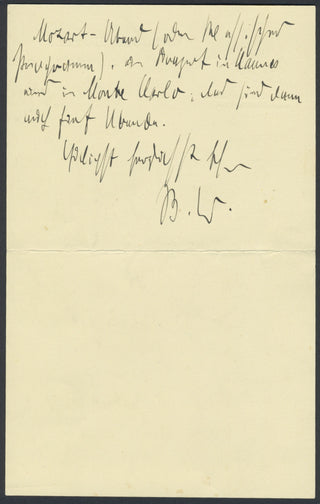 Mozart-Abend (oder klassisches
Programm), ein Konzert in Cannes
und in Monte Carlo; das sind dann
auch fünf Abende.
herzlichst Ihr
B.W.